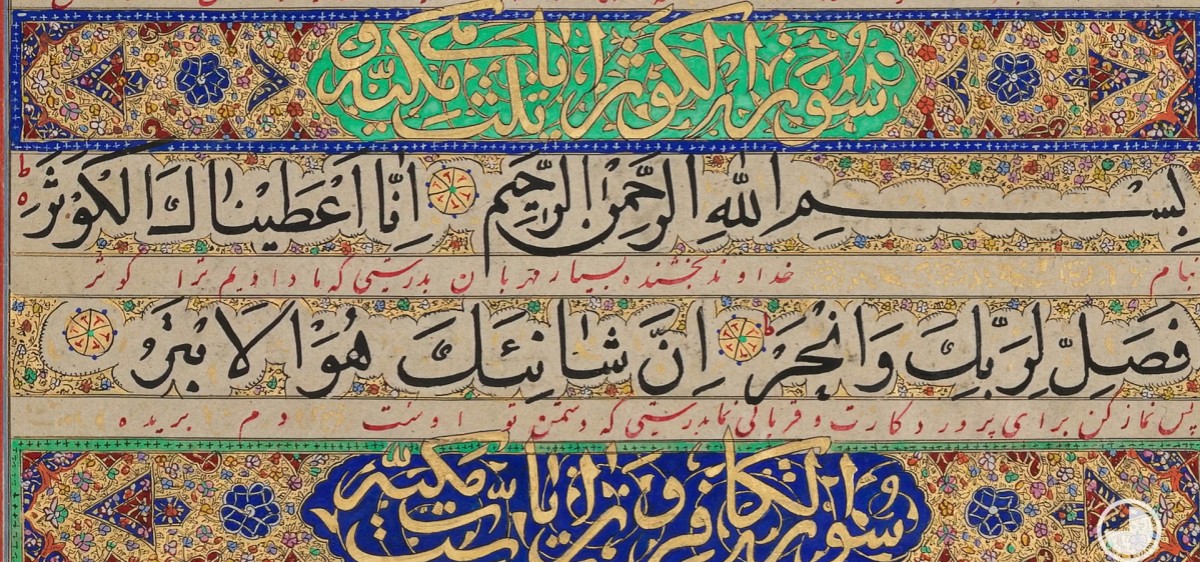 سورة الكوثر ثلث ايات مكية
بِسْمِ اللهِ الرَّحْمٰنِ الرَّحِيمِ اِنَّا اَعْطَيْنَاكَ الْكَوْثَرَ ط
بنام خداوند بخشنده بسیار مهربان بدرستی که ما دادیم ترا کوثر
فَصَلِّ لِرَبِّكَ وَانْحَرْ ط اِنَّ شَانِئَكَ هُوَ الْاَبْتَرُ
پس نماز کن برای پروردکارت و قربانی نما بدرستی که دشمن تو اوست دم بریده
سورة الكافرون ست ايات مكية